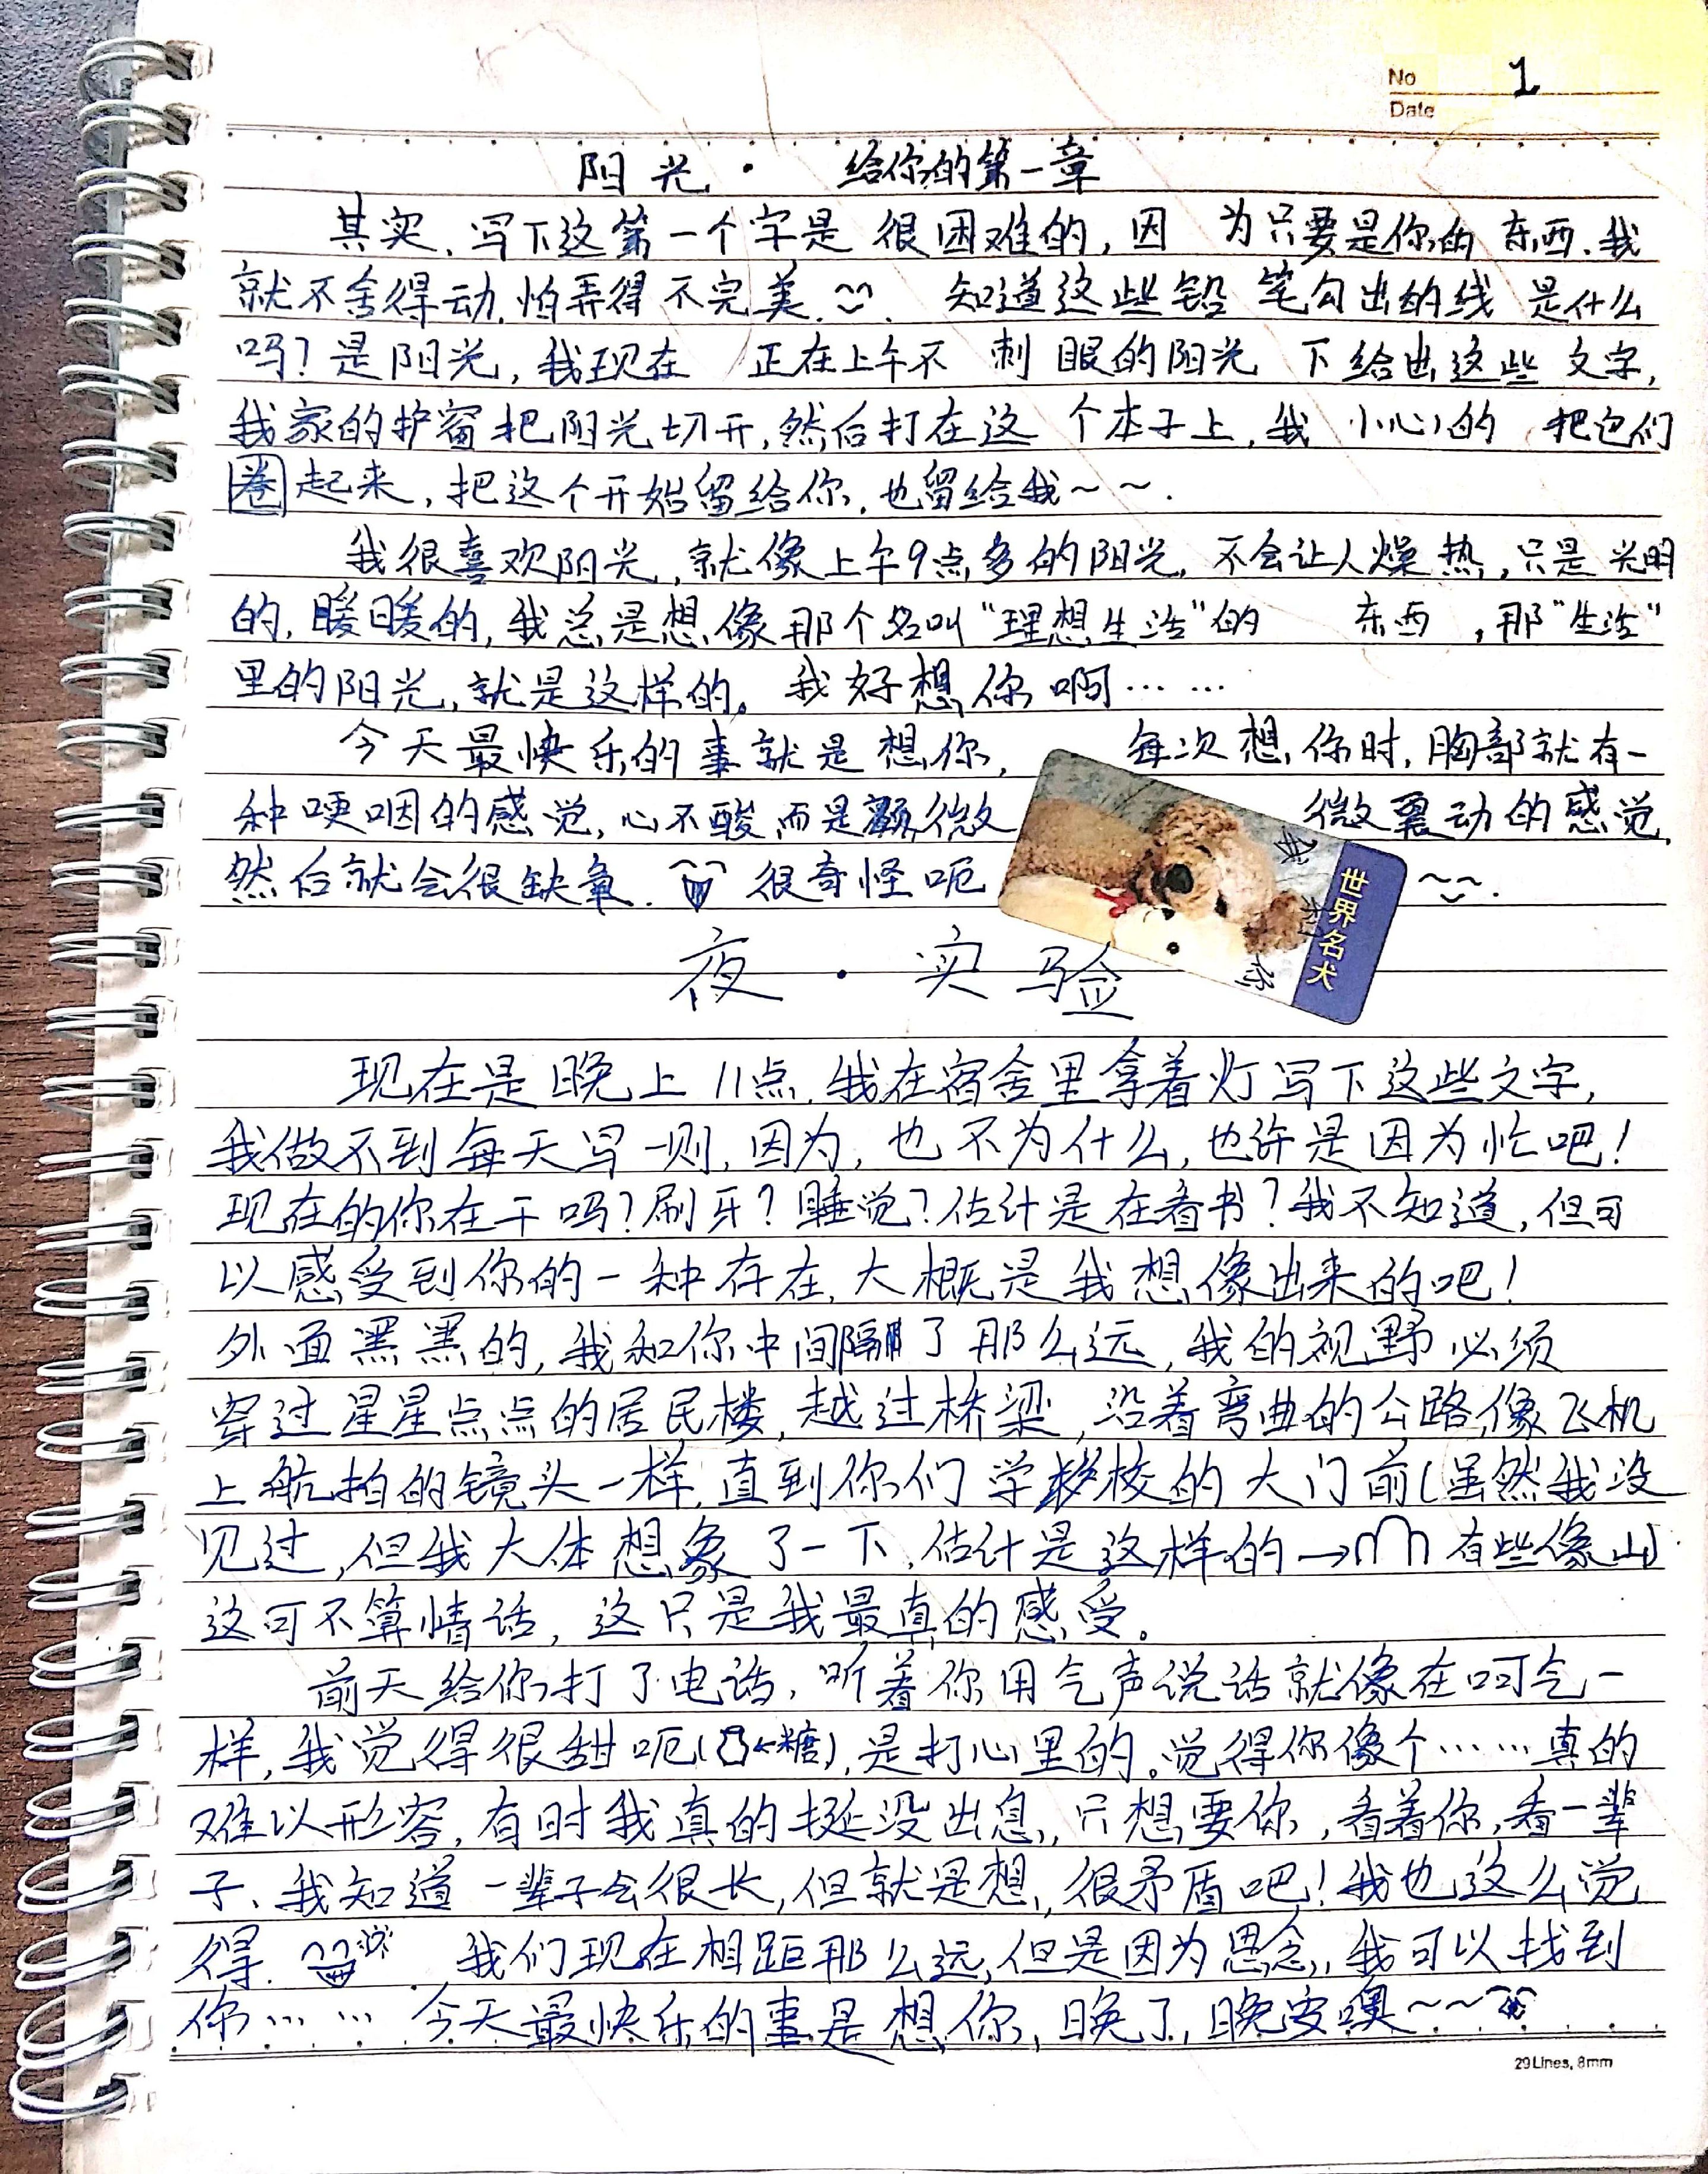 No 1
Date
阳光· 给你的第一章
其实,写下这第一个字是很困难的,因为只要是你的东西,我
就不舍得动,怕弄得不完美. 知道这些铅笔勾出的线是什么
吗?是阳光,我现在正在上午不刺眼的阳光下给出这些文字,
我家的护窗把阳光切开,然后打在这个本子上,我小心的把它们
圈起来,把这个开始留给你,也留给我~~.
我很喜欢阳光,就像上午9点多的阳光,不会让人燥热,只是光明
的,暖暖的,我总是想像那个名叫“理想生活”的东西,那“生活”
里的阳光,就是这样的。我好想你啊……
今天最快乐的事就是想你,每次想你时,胸部就有一
种哽咽的感觉,心不酸,而是微微震动的感觉,
然后就会很缺氧. 很奇怪呃
世界名犬
我
到
你
夜·实验
现在是晚上11点,我在宿舍里拿着灯写下这些文字,
我做不到每天写一则,因为,也不为什么,也许是因为忙吧!
现在的你在干吗?刷牙?睡觉?估计是在看书?我不知道,但可
以感受到你的一种存在,大概是我想像出来的吧!
外面黑黑的,我和你中间隔了那么远,我的视野必须
穿过星星点点的居民楼,越过桥梁,沿着弯曲的公路,像飞机
上航拍的镜头一样,直到你们学校的大门前(虽然我没
见过,但我大体想象了一下,估计是这样的→ 有些像山)
这可不算情话,这只是我最真的感受。
前天给你打了电话,听着你用气声说话就像在呵气一
样,我觉得很甜呃(←糖),是打心里的。觉得你像个……真的
难以形容,有时我真的挺没出息,只想要你,看着你,看一辈
子、我知道一辈子会很长,但就是想,很矛盾吧!我也这么觉
得. 我们现在相距那么远,但是因为思念,我可以找到
你…… 今天最快乐的事是想你,晚了,晚安噢~~
29Lines, 8mm